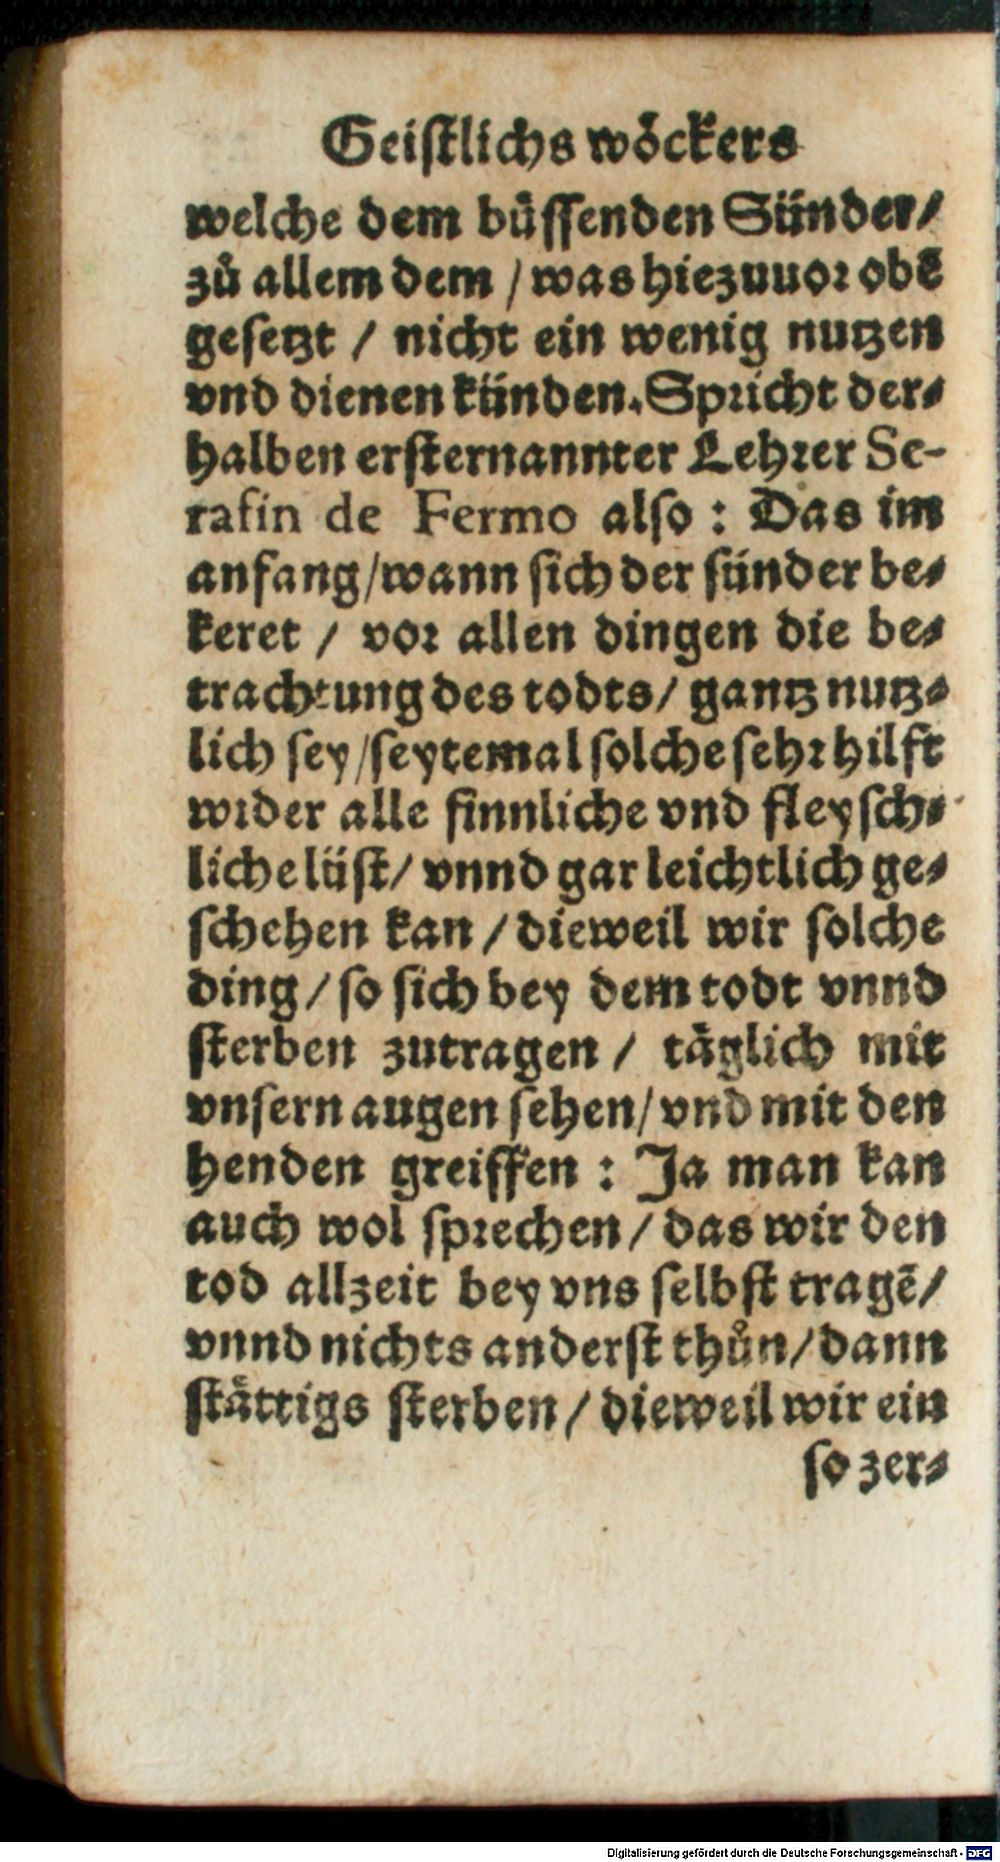 Geistlichs wöckers
welche dem büssenden Sünder/
zů allem dem / was hiezuuor obẽ
gesetzt / nicht ein wenig nutzen
vnd dienen künden. Spricht der-
halben ersternannter Lehrer Se-
rafin de Fermo also : Das im
anfang/wann sich der sünder be-
keret / vor allen dingen die be-
trachtung des todts/ gantz nutz-
lich sey/seytemal solche sehr hilft
wider alle sinnliche vnd fleysch-
liche lüst/ vnnd gar leichtlich ge-
schehen kan / dieweil wir solche
ding/ so sich bey dem todt vnnd
sterben zutragen / täglich mit
vnsern augen sehen/ vnd mit den
henden greiffen : Ja man kan
auch wol sprechen / das wir den
tod allzeit bey vns selbst tragẽ/
vnnd nichts anderst thůn/ dann
stättigs sterben / dieweil wir ein
so zer-
Digitalisierung gefördert durch die Deutsche Forschungsgemeinschaft - DFG